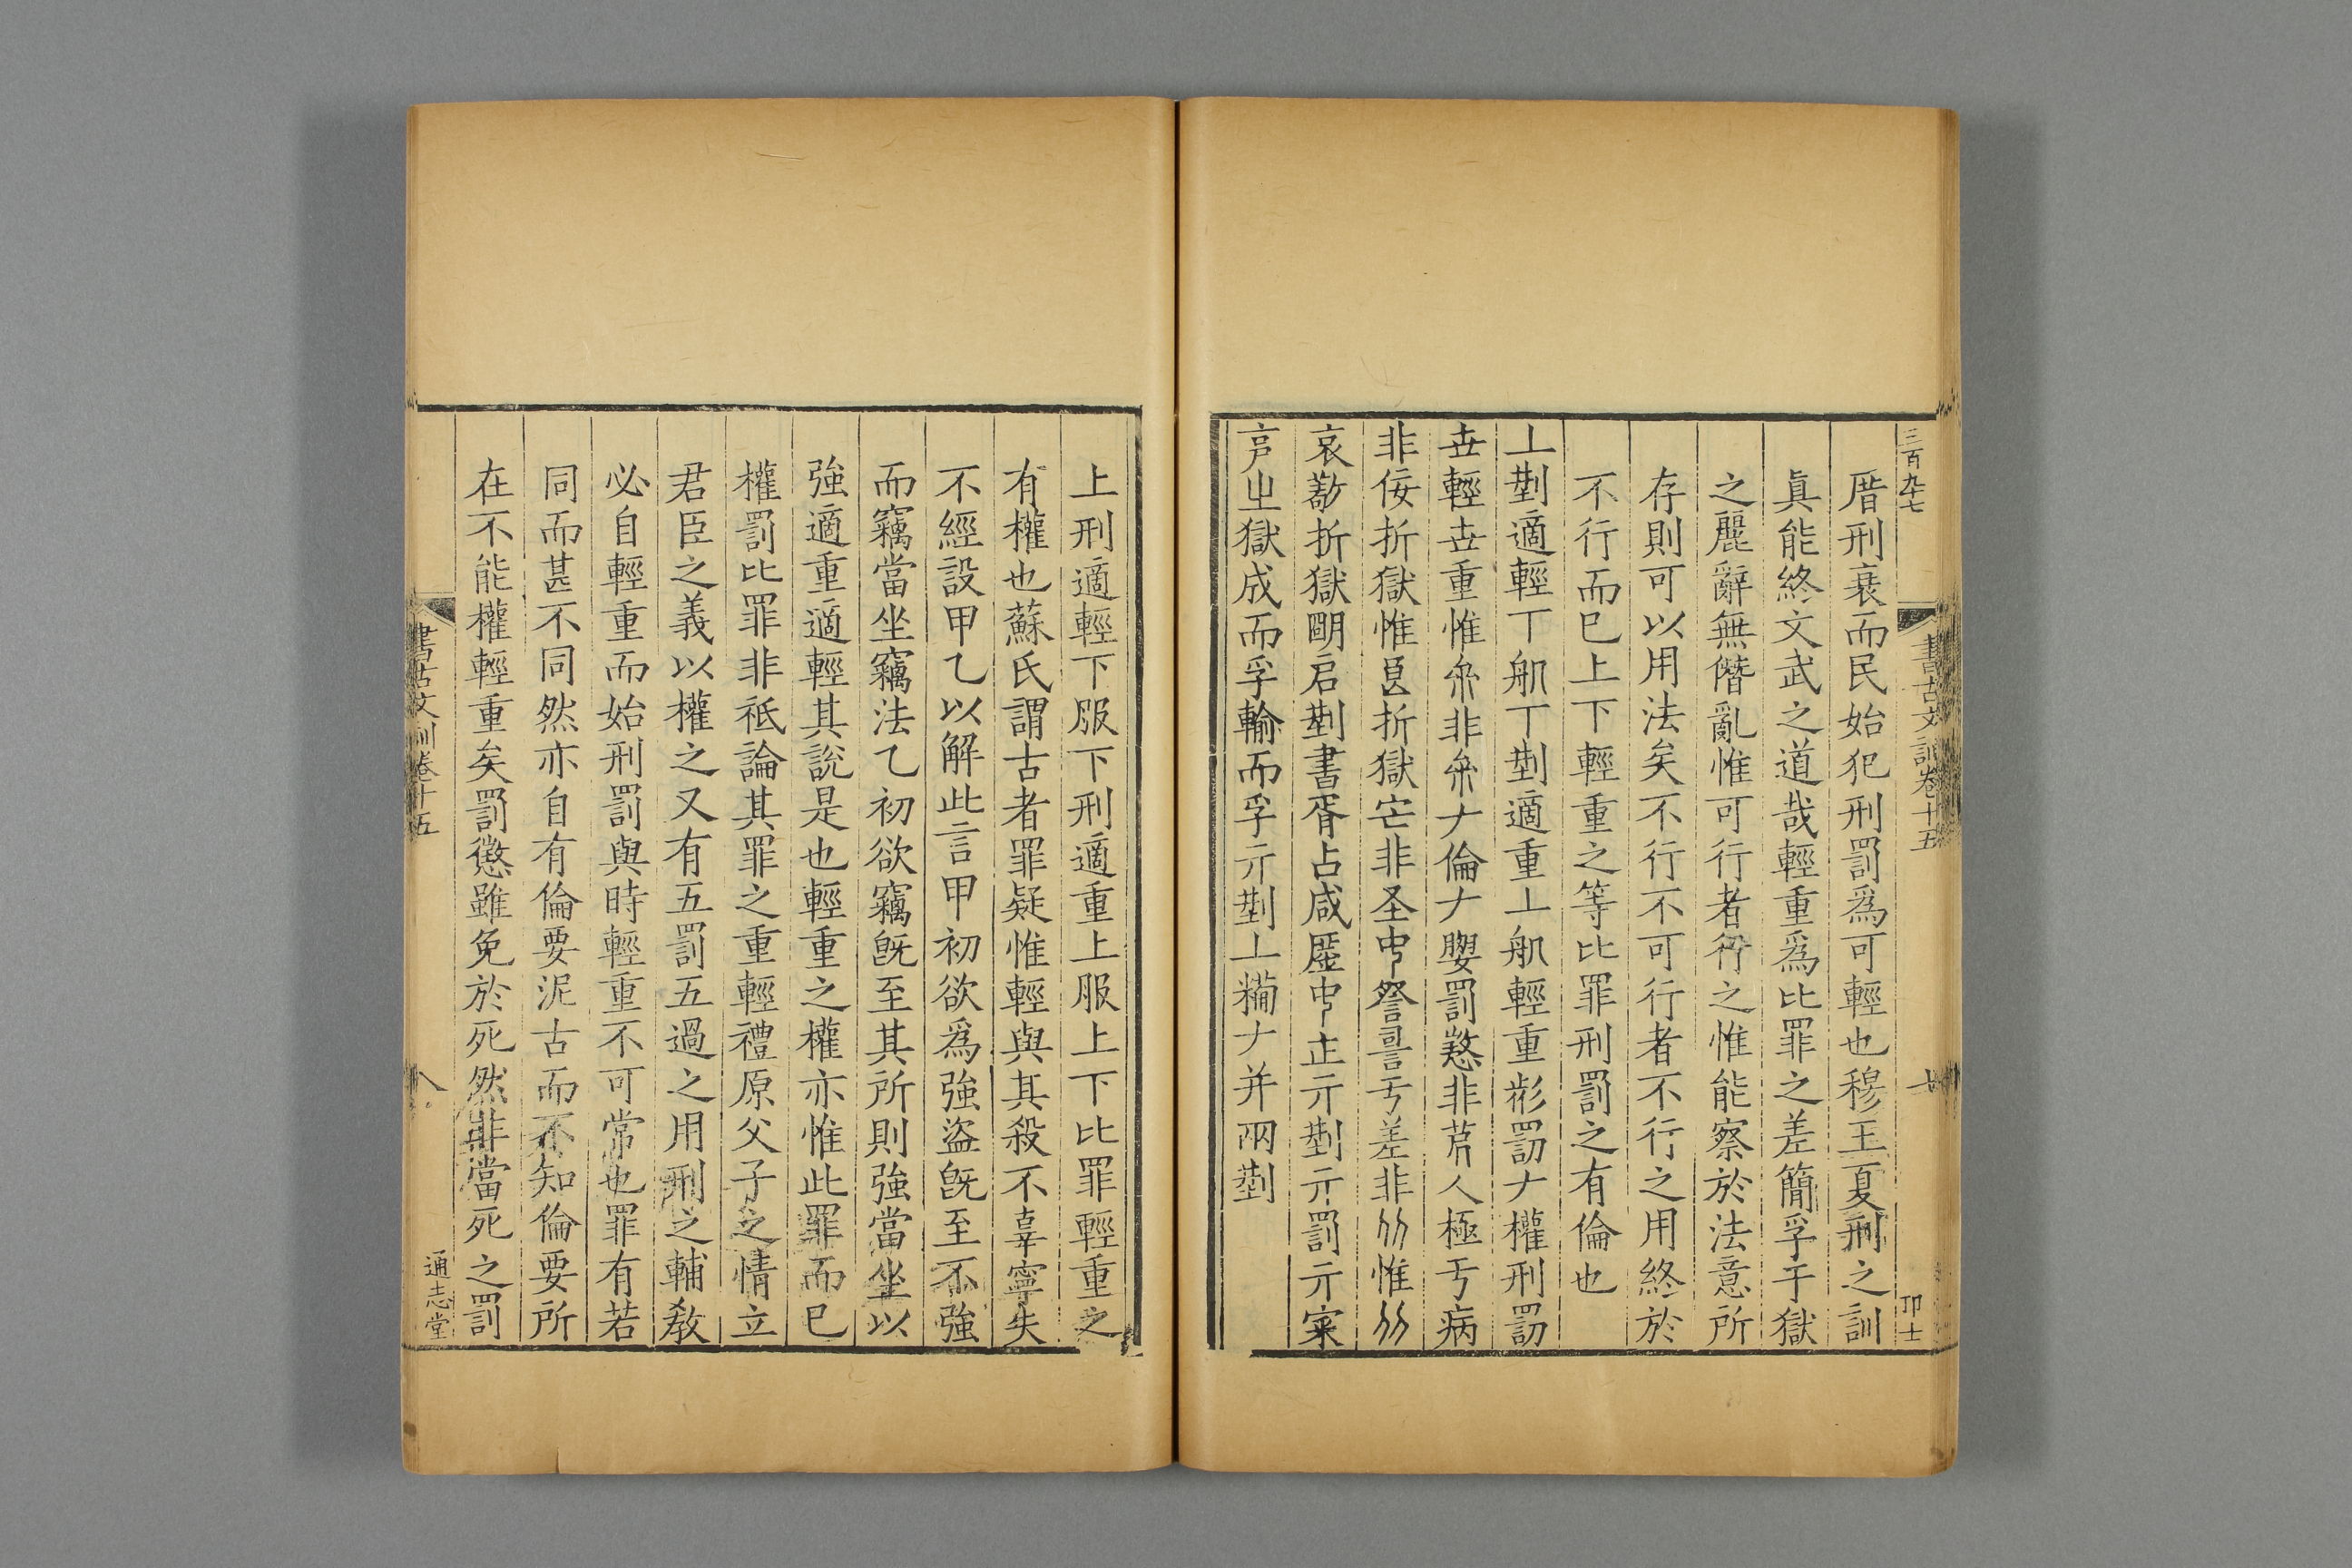 三百九十七
書古文訓卷十五
厝刑衰而民始犯刑罰爲可輕也穆王夏刑之訓
眞能終文武之道哉輕重爲比罪之差簡孚于獄
之麗辭無僭亂惟可行者行之惟能察於法意所
存則可以用法矣不行不可行者不行之用終於
不行而已上下輕重之等比罪刑罰之有倫也
丄㓝適輕丅舧丅㓝適重丄舧輕重罰ナ權刑罰
丗輕丗重惟亝非亝ナ倫ナ罰非人極于病
非佞折獄惟折獄非圣中差非加惟
哀折獄朙启㓝書胥占咸中正亓㓝亓罰亓宷
㞢獄成而孚輸而孚亓㓝丄ナ并㓝
上刑適輕下服下刑適重上服上下比罪輕重之
有權也蘇氏謂古者罪疑惟輕與其殺不辜寧失
不經設甲乙以解此言甲初欲爲強盜旣至不強
而竊當坐竊法乙初欲竊旣至其所則強當坐以
強適重適輕其說是也輕重之權亦惟此罪而已
權罰比罪非祇論其罪之重輕禮原父子之情立
君臣之義以權之又有五罰五過之用刑之輔敎
必自輕重而始刑罰與時輕重不可常也罪有若
同而甚不同然亦自有倫要泥古而不知倫要所
在不能權輕重矣罰懲雖免於死然非當死之罰
書古文訓卷十五
通志堂